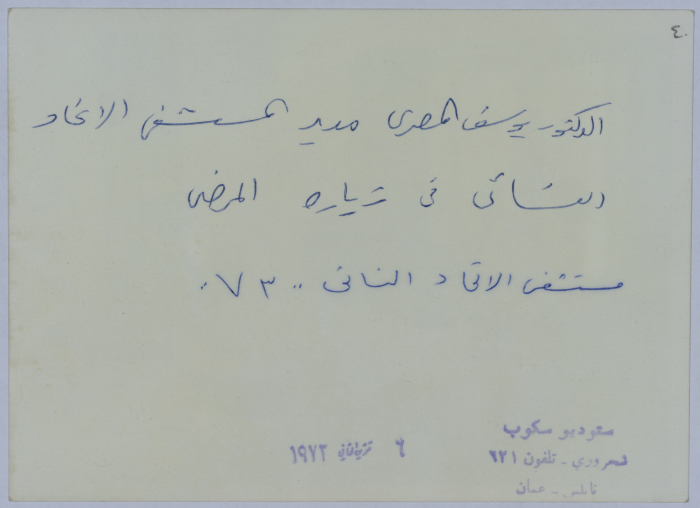 ٤٠
الدكتور يوسف المصري مدير المستشفى الاتحاد
النسائي في زيارة المرضى
مستشفى الاتحاد النسائي ٧٣٠٠
ستوديو سكوب
شحروري - تلفون ٦٢١
نابلس - عمان
٦ تشرين الثاني ١٩٧٢